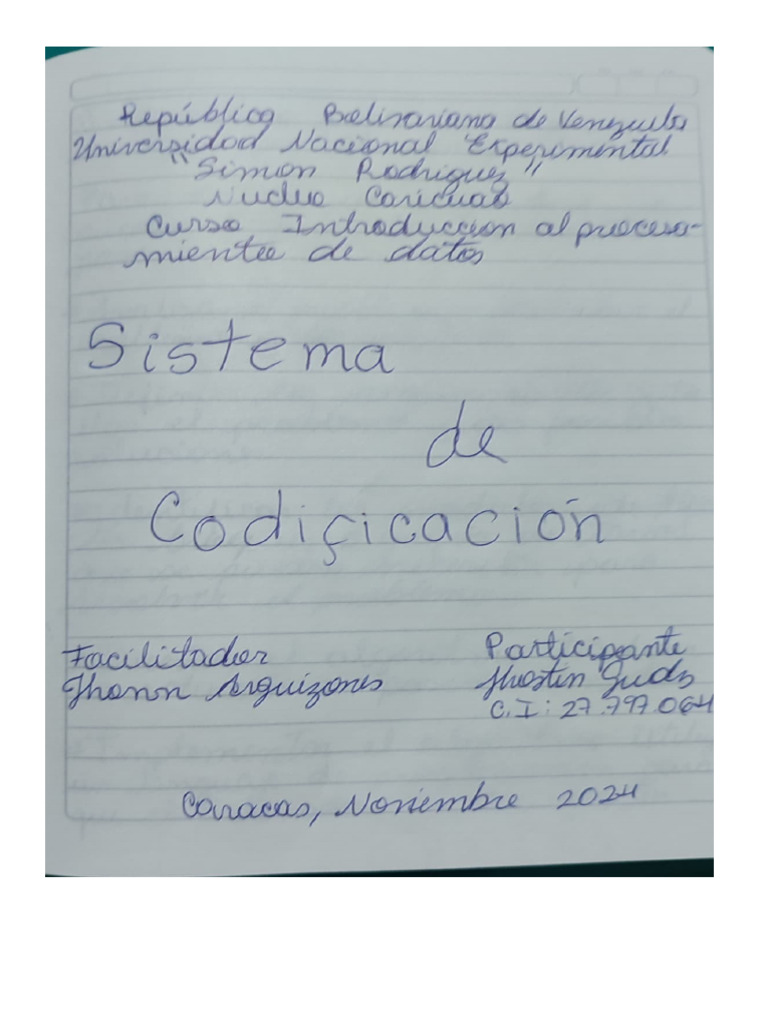 República Bolivariana de Venezuela
Universidad Nacional Experimental
"Simon Rodriguez"
Nucleo Caricuao
Curso Introduccion al procesa-
miento de datos
Sistema
de
Codificación
Facilitador
Participante
Jhonn Arguizones
Jhostin
C.I: 27.797.064
Caracas, Noviembre 2024